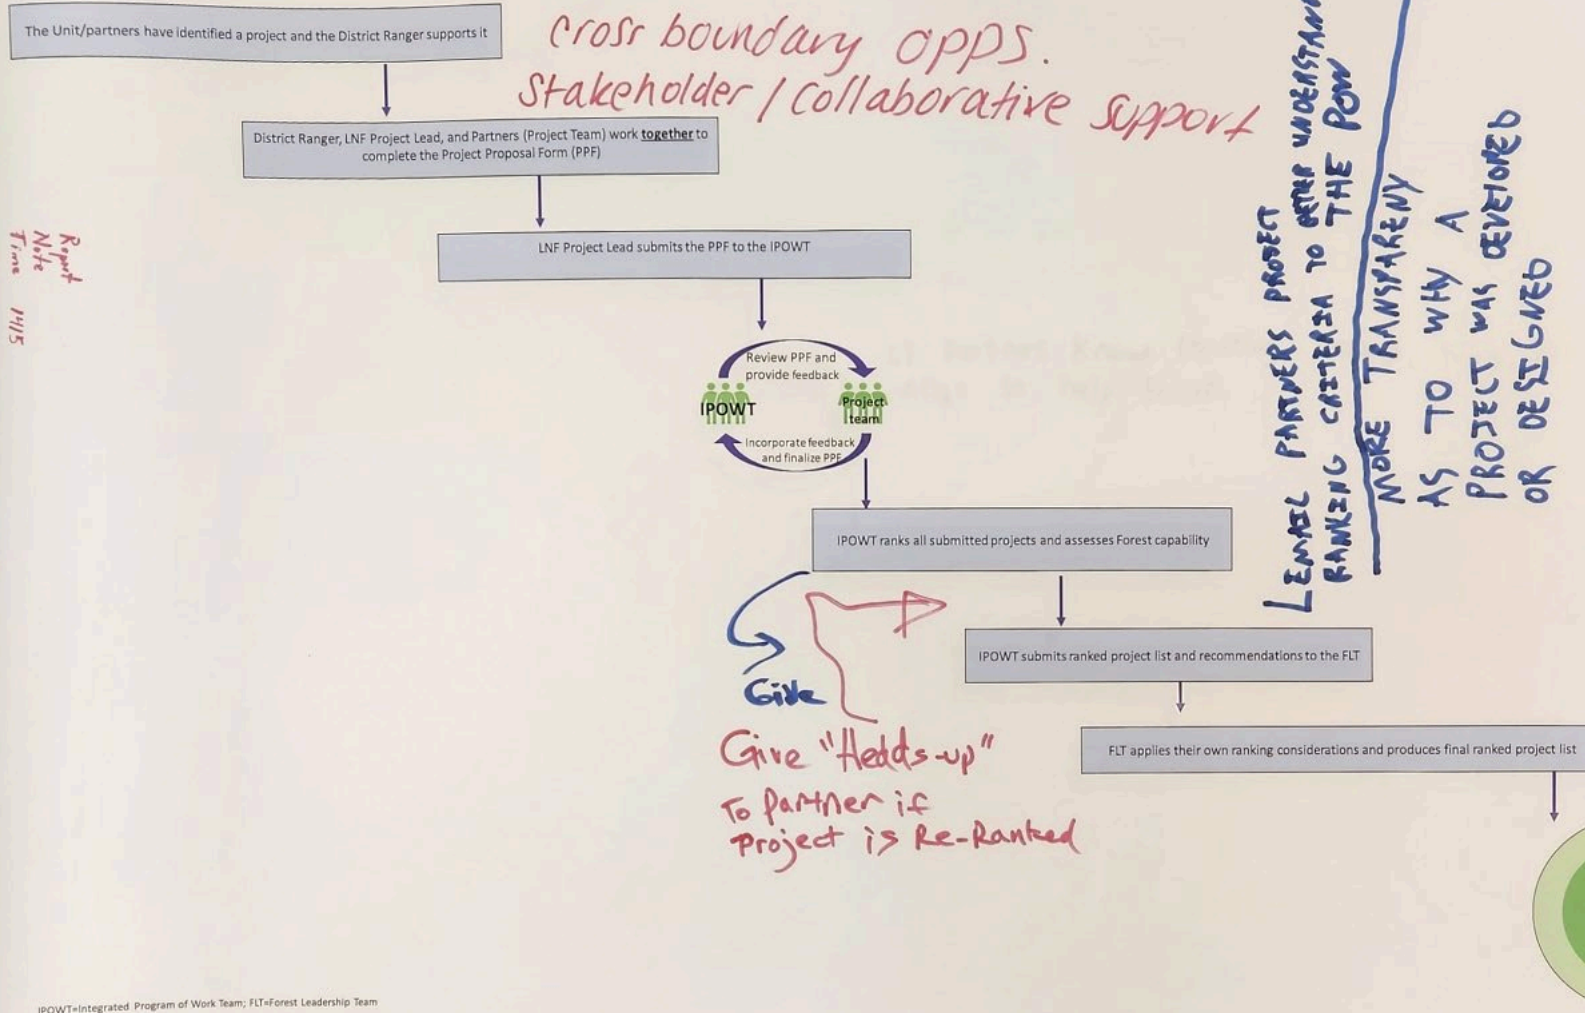 The Unit/partners have identified a project and the District Ranger supports it
cross boundary opps.
Stakeholder / Collaborative support
District Ranger, LNF Project Lead, and Partners (Project Team) work together to
complete the Project Proposal Form (PPF)
LNF Project Lead submits the PPF to the IPOWT
Report
Note
Time 1415
Review PPF and
provide feedback
IPOWT
Project
team
Incorporate feedback
and finalize PPF
IPOWT ranks all submitted projects and assesses Forest capability
IPOWT submits ranked project list and recommendations to the FLT
FLT applies their own ranking considerations and produces final ranked project list
Give
Give "Hedds-up"
To Partner if
project is Re-Ranked
EMAIL PARTNERS PROJECT
RANKING CRITERIA TO BETTER UNDERSTAND
THE POW
MORE TRANSPARENY
AS TO WHY A
PROJECT WAS DEVELOPED
OR DESIGNED
IPOWT=Integrated Program of Work Team; FLT=Forest Leadership Team